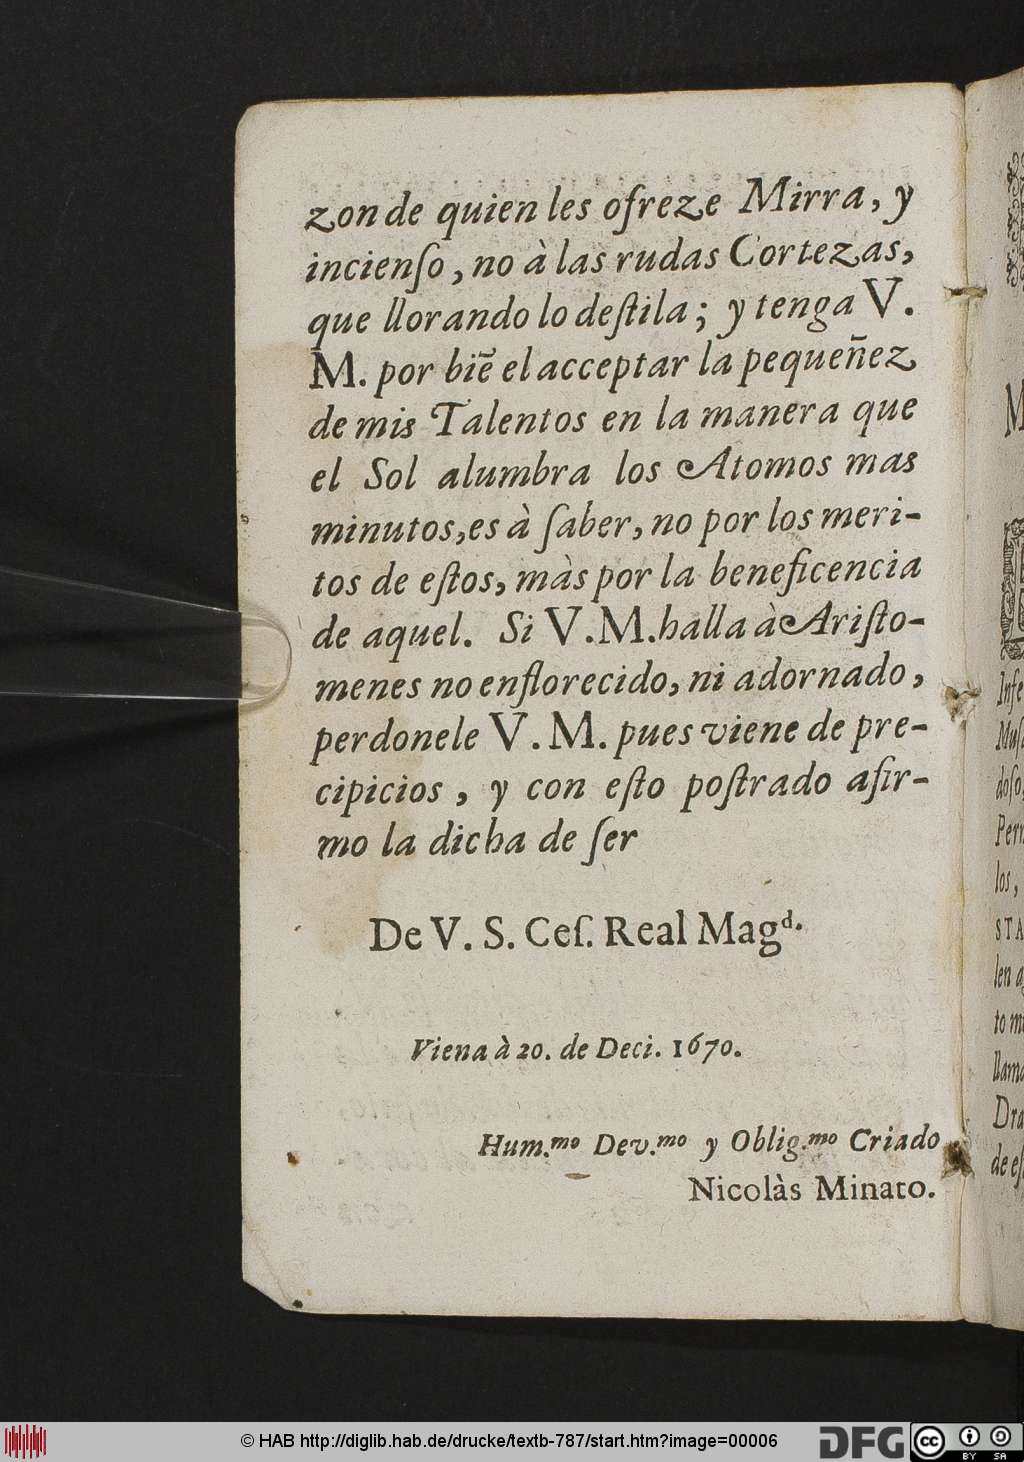 zon de quien les ofreze Mirra, y
incienſo, no à las rudas Cortezas,
que llorando lo deſtila; y tenga V.
M. por biẽ el acceptar la pequeñez
de mis Talentos en la manera que
el Sol alumbra los Atomos mas
minutos, es à ſaber, no por los meri-
tos de eſtos, màs por la beneficencia
de aquel. Si V. M. halla à Ariſto-
menes no enflorecido, ni adornado,
perdonele V. M. pues viene de pre-
cipicios, y con eſto poſtrado afir-
mo la dicha de ſer
De V. S. Ceſ. Real Magᵈ.
Viena à 20. de Deci. 1670.
Hum.ᵐᵒ Dev.ᵐᵒ y Oblig.ᵐᵒ Criado
Nicolàs Minato.
M
Infe
Muſ
doſo,
Per
los,
STA
len
to
llam
Dra
de eſ
© HAB http://diglib.hab.de/drucke/textb-787/start.htm?image=00006
DFG
cc
BY SA